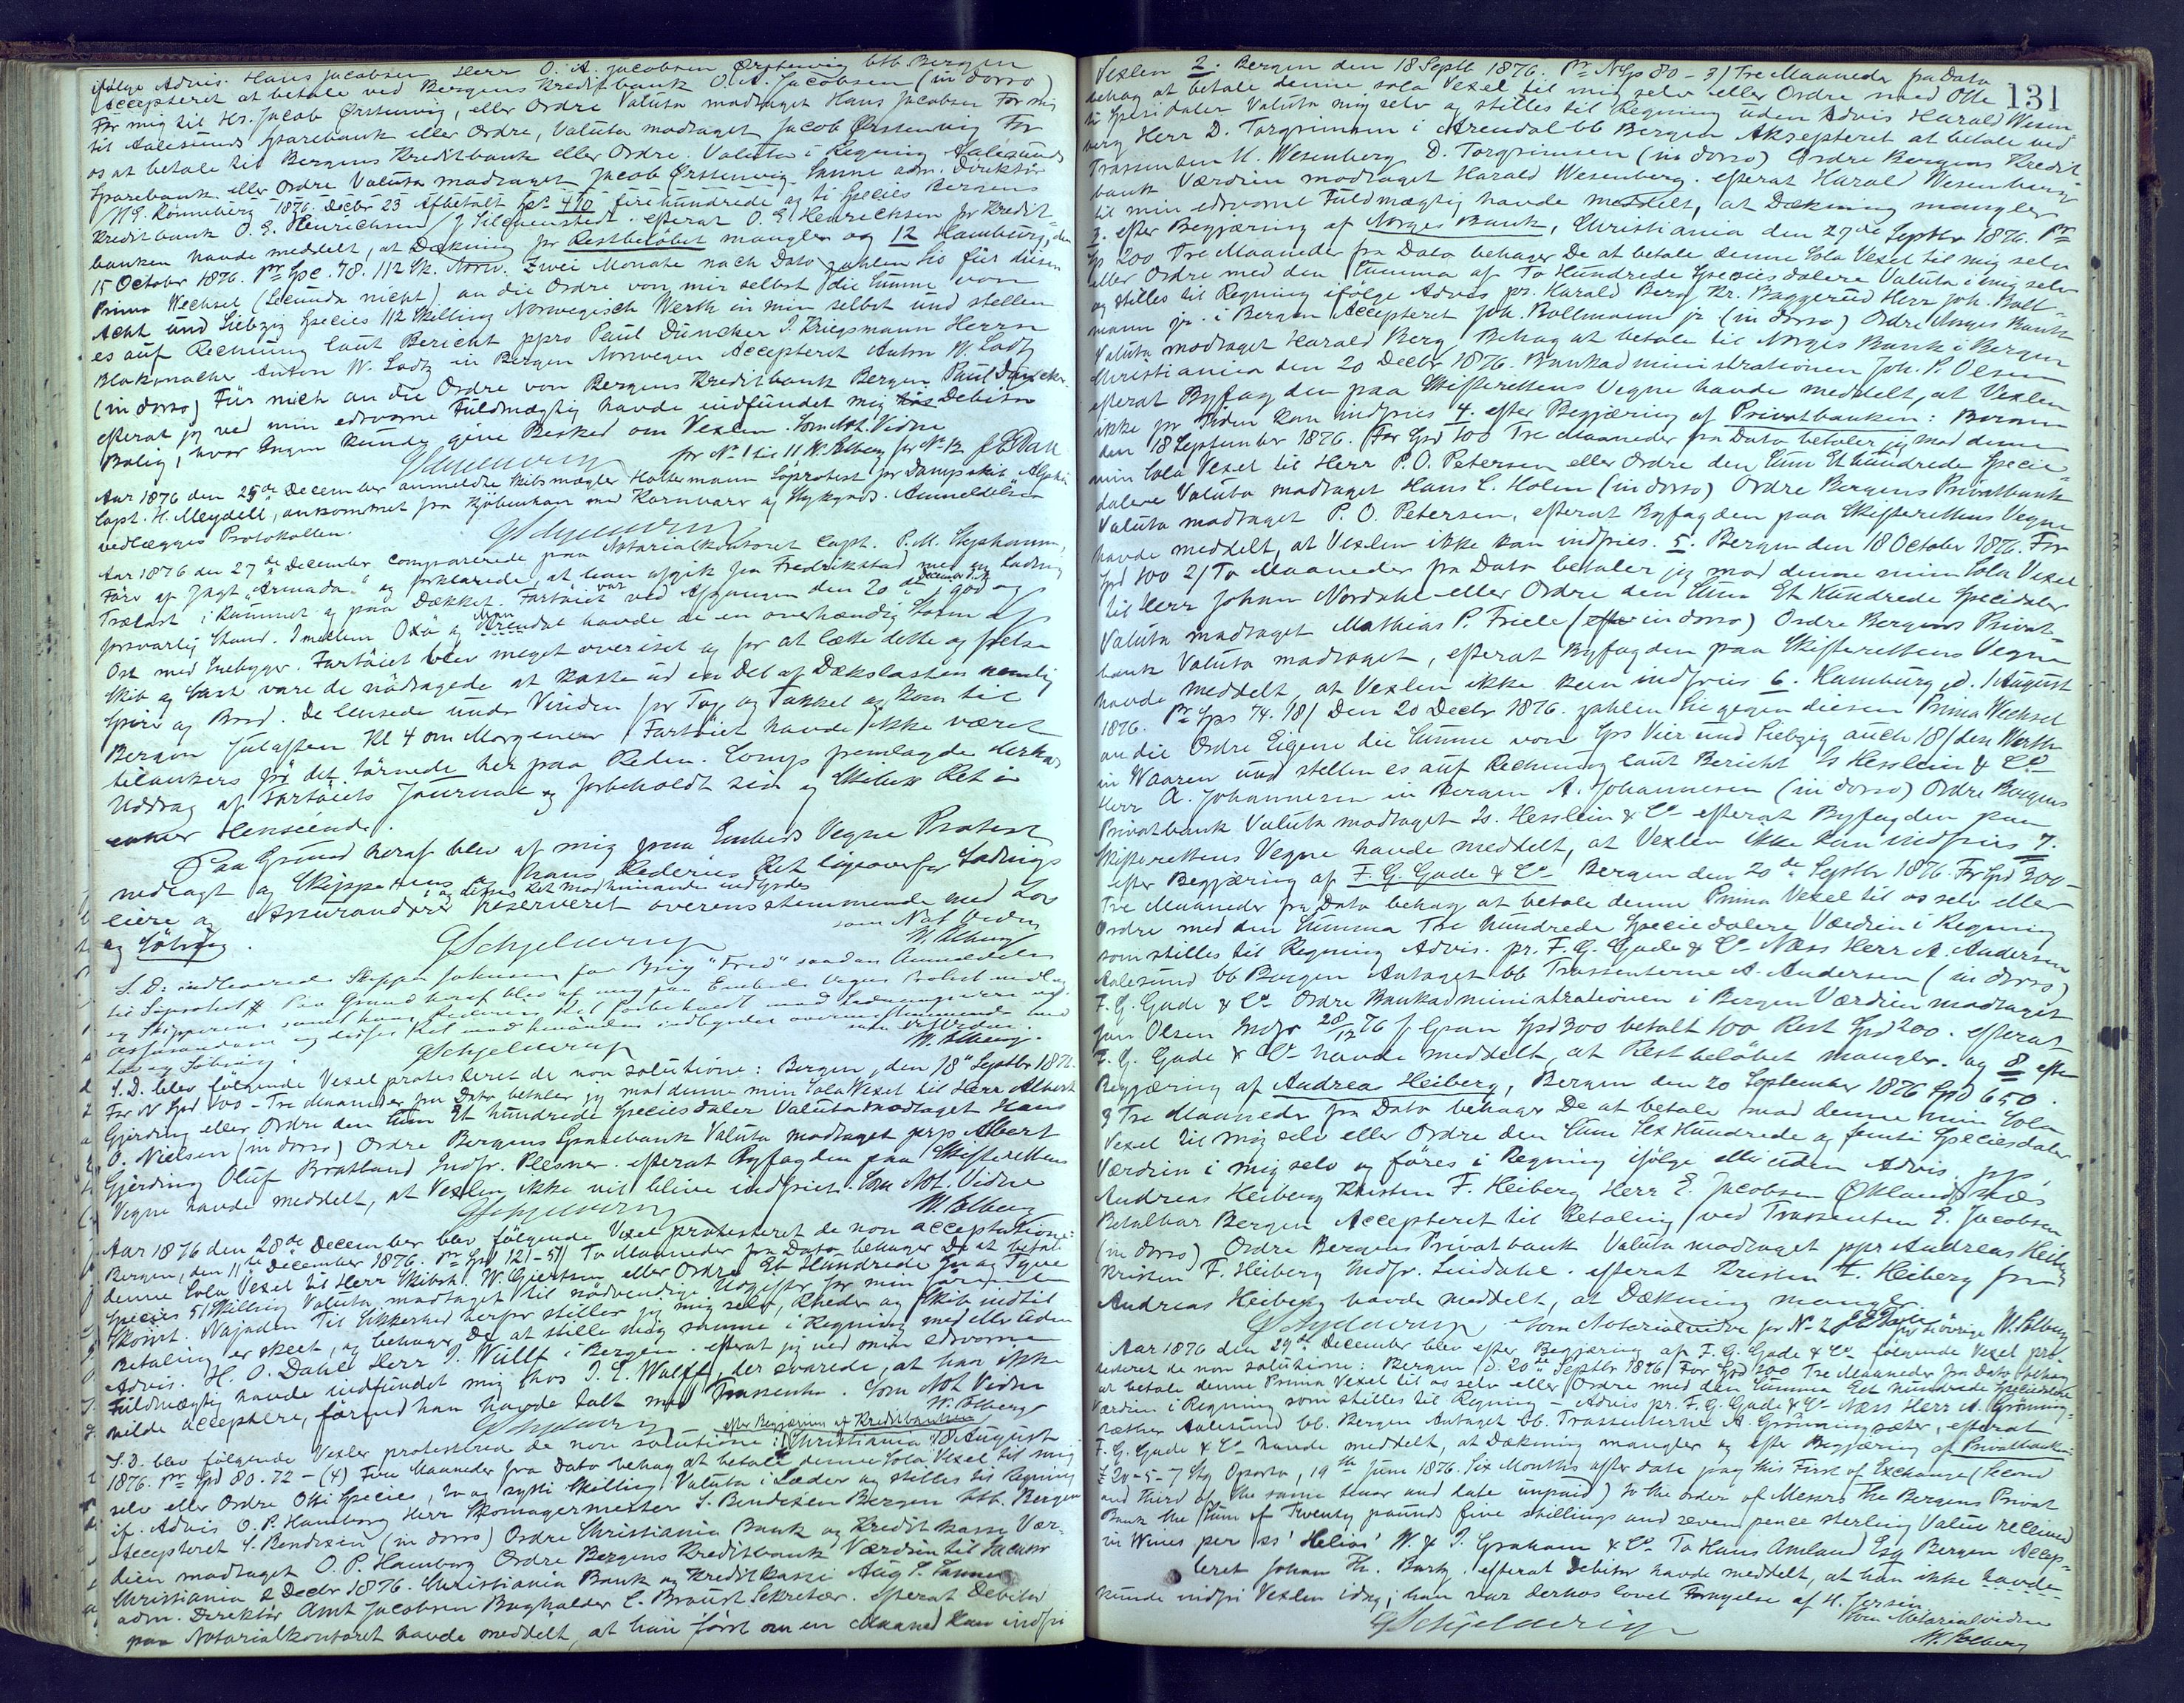 ifölge Advis. Hans Jacobsen Herr O. A. Jacobsen Ørstenvig btb. Bergen
Accepteret at betale ved Bergens Kreditbank O. A. Jacobsen (in dorso)
For mig til Hr. Jacob Ørstenvig, eller Ordre Valuta modtaget Hans Jacobsen For mig
til Aalesunds Sparebank eller Ordre, Valuta modtaget Jacob Ørstenvig For
os at betale til Bergens Kreditbank eller Ordre. Valuta i Regning Aalesunds
Sparebank eller Ordre Valuta modtaget Jacob Ørstenvig. Sanne adm. Direktör
N. G. Rönneberg 1876. Decbr 23 Afbetalt Spd. 410 firehundrede og ti Species Bergens
Kreditbank O. E. Henrichsen / J Silchenstedt. efterat O. E. Henrichsen for Kredit-
banken havde meddelt, at Dækning for Restbelöbet mangler og 12 Hamburg, den
15 October 1876. Pr Spc. 78. 112 Sk. Norw. Zwei Monate nach Dato zahlen Sie für diesen
Prima Wechsel (Secunda nicht) an die Ordre von mir selbst die Summe von
Acht und Siebzig Species 112 Skilling Norwegisch Werth in mir selbst und stellen
es auf Rechnung laut Bericht ppro Paul Duncker J. Kriegsmann Herrn
Blokmacher Anton W. Ladtz in Bergen Norwegen Accepteret Anton W. Ladtz
(in dorso) Für mich an die Ordre von Bergens Kreditbank Bergen. Paul Duncker.
efterat jeg ved min edsvorne Fuldmægtig havde indfundet mig hos Debitors
Bolig, hvor Ingen kunde give Besked om Vexlen. Som Not. Vidne
GSchjelderup for No 1 til 11 W. Solberg for No 12
Aar 1876 den 25de December anmeldte Skibsmægler Holtermann Söprotest for Dampskib
Capt. H. Meydell, ankommet fra Kjöbenhavn med Kornvarer og Stykgods. Anmeldelsen
vedlægges Protokollen.
GSchjelderup
Aar 1876 den 27de December comparerede paa Notarialkontoret Capt. P. M.
Förer af Jagt "Armada" og forklarede, at han afgik fra Fredrikstad med en Ladning
Trælast i Rummet og paa Dækket. Fartöiet var ved Afgangen den 20 de December i god og
forsvarlig Stand. Imellem Oxö og Arendal havde de en overhændig Storm af
Ost med Snebyger. Fartöiet blev meget overiset og for at lette dette og frelse
Skib og Last vare de nödsagede at kaste ud en Del af Dækslasten nemlig
Spirer og Bord. De lensede under Vinden for Tag og Takkel og kom til
Bergen Juleaften Kl 4 om Morgenen. Fartöiet havde ikke været
tilankers för det törnede her paa Reden. Comp fremlagde derhos
Uddrag af Fartöiets Journal og forbeholdt sig og Skibets Ret i
enhver Henseende.
Paa Grund heraf blev af mig paa Embeds Vegne Protest
nedlagt og Skipperens og hans Rederies Ret ligeoverfor Ladnings
eiere og Assurandörer og disses Ret mod hinanden indbyrdes reserveret overensstemmende med Lov
og Sölving.
GSchjelderup
som Not Vidne
W. Solberg
S. D. indleverede Skipper Johnsen for Brig "Fred" saadan Anmeldelse
til Söprotest # Paa Grund heraf blev af mig paa Embeds Vegne Protest nedlagt
og Skipperens samt hans Rederies Ret forbeholdt mod Ladningseiere og
Assurandörer og disses Ret mod hinanden indbyrdes overensstemmende med
Lov og Sölving
GSchjelderup
som Not Vidne.
W. Solberg.
S. D. blev fölgende Vexel protesteret de non solutione: Bergen, den 18de Septbr 1876.
For N Spd 100 - Tre Maaneder fra Dato betaler jeg mod denne min Sola Vexel til Herr Albert
Gjerding eller Ordre den Sum Et hundrede Speciesdaler Valuta modtaget Hans
O. Nielsen (in dorso) Ordre Bergens Sparebank Valuta modtaget prp. Albert
Gjerding Oluf Bratland Indfr. Plesner. efterat Byfogden paa Skifterettens
Vegne havde meddelt, at Vexlen ikke vil blive indfriet. Som Not. Vidne
GSchjelderup W. Solberg
Aar 1876 den 28de December blev fölgende Vexel protesteret de non acceptatione:
Bergen, den 11te December 1876. Pr Spd 121-51 To Maaneder fra Dato behager De at betale
denne Sola Vexel til Herr Skibsk. W. Gjertsen eller Ordre Et Hundrede En og Tyve
Species 51 Skilling Valuta modtaget til nödvendige Udgifter for min
Skönt. Najaden Til Sikkerhed herfor stiller jeg mig selv, Rheder og Skib indtil
Betaling er skeet, og behager De at stille mig samme i Regning med eller uden
Advis. H. O. Dahle Herr J. Wulff i Bergen. efterat jeg ved min edsvorne
Fuldmægtig havde indfundet mig hos J. E. Wulff, der svarede, at han ikke
vilde acceptere, förend han havde talt med Trassenten. Som Not Vidne
GSchjelderup W. Solberg
efter Begjæring af Kreditbanken
S. D. blev fölgende Vexler protesterede de non solutione: 1, Christiania 18 August
1876. Pr Spd 80. 72 - (4) Fire Maaneder fra Dato behag at betale denne Sola Vexel til mig
selv eller Ordre Otti Species, to og sytti Skilling Valuta i Læder og stilles til Regning
if. Advis O. P. Hamborg Herr Skomagermester S. Bendixen Bergen btb. Bergen
Accepteret S. Bendixen (in dorso) Ordre Christiania Bank og Kreditkasse Vær-
dien modtaget O. P. Hamborg Ordre Bergens Kreditbank Værdien til Incasso
Christiania 2 Decbr 1876. Christiania Bank og Kreditkasse Aug S.
adm. Direktör Amt Jacobsen Bogholder C. Sekretær. efterat Debitor
paa Notarialkontoret havde meddelt, at han först om en Maaned kan indfri
131
Vexlen 2. Bergen den 18 Septb 1876. Pr NSp 80 - 3/ Tre Maaneder fra Dato
behag at betale denne sola Vexel til mig selv eller Ordre med Otte
ti Specidaler Valuta mig selv og stilles til Regning uden Advis Harald Wesen-
berg Herr D. Torgrimsen i Arendal bb Bergen Aksepteret at betale ved
Trassenten H. Wesenberg D. Torgrimsen (in dorso) Ordre Bergens Kredit-
bank Værdien modtaget Harald Wesenberg. efterat Harald Wesenberg
til min edsvorne Fuldmægtig havde meddelt, at Dækning mangler
3. efter Begjæring af Norges Bank, Christiania den 27de Septbr 1876. Pr
Sp 200 Tre Maaneder fra Dato behager De at betale denne Sola Vexel til mig selv
eller Ordre med den Summa af To Hundrede Speciesdalere Valuta i mig selv
og stilles til Regning ifölge Advis pr. Harald Berg Kr. Baggerud Herr Joh. Bolt-
mann jr. i Bergen Accepteret Joh. Boltmann jr. (in dorso) Ordre Norges Bank
Valuta modtaget Harald Berg Behag at betale til Norges Bank i Bergen
Christiania den 20 Decbr 1876. Bankadministrationen Joh. P. Olsen
efterat Byfogden paa Skifterettens Vegne havde meddelt, at Vexlen
ikke for Tiden kan indfries 4. efter Begjæring af Privatbanken: Bergen
den 18 September 1876. For Spd 100 Tre Maaneder fra Dato betaler jeg mod denne
min Sola Vexel til Herr P. O. Petersen eller Ordre den Sum Et hundrede Specie-
dalere Valuta modtaget Hans C. Holen (in dorso) Ordre Bergens Privatbank
Valuta modtaget P. O. Petersen, efterat Byfogden paa Skifterettens Vegne
havde meddelt, at Vexlen ikke kan indfries. 5. Bergen den 18 October 1876. For
Spd 100 2/ To Maaneder fra Dato betaler jeg mod denne min Sola Vexel
til Herr Johan Nordahl eller Ordre den Sum Et Hundrede Specidaler
Valuta modtaget Mathias P. Friele (efter in dorso) Ordre Bergens Privat-
bank Valuta modtaget, efterat Byfogden paa Skifterettens Vegne
havde meddelt, at Vexlen ikke kan indfries 6. Hamburg, d. 1 August
1876. Pr Sps 74. 18/ Den 20 Decbr 1876. zahlen Sie gegen diesen Prima Wechsel
an die Ordre Eigene die Summe von Sps Vier und Siebzig auch 18/ den Werth
in Waaren und stellen es auf Rechnung laut Bericht Is Hesslein & Co
Herr A. Johannesen in Bergen A. Johannesen (in dorso) Ordre Bergens
Privatbank Valuta modtaget Is. Hesslein & Co efterat Byfogden paa
Skifterettens Vegne havde meddelt, at Vexlen ikke kan indfries 7.
efter Begjæring af F. G. Gade & Co Bergen den 20de Septbr 1876. For Spd 300-
Tre Maaneder fra Dato behag at betale denne Prima Vexel til os selv eller
Ordre med den Summa Tre hundrede Speciedalere Værdien i Regning
som stilles til Regning Advis. pr. F. G. Gade & Co Næss Herr A. Andersen
Aalesund bb Bergen Antaget bb Trassenterne A. Andersen (in dorso)
F. G. Gade & Co Ordre Bankadministrationen i Bergen Værdien modtaget
Jans Olsen Indfr 28/12 76 / Gran Spd 300 betalt 100 Rest Spd 200. efterat
F. G. Gade & Co havde meddelt, at Restbelöbet mangler. og 8 efter
Begjæring af Andrea Heiberg, Bergen den 20 September 1876 Spd 650.
3 Tre Maaneder fra Dato behager De at betale mod denne min Sola
Vexel til mig selv eller Ordre den Sum Sex Hundrede og femti Speciesdaler
Værdien i mig selv og föres i Regning ifölge eller uden Advis pp.
Andreas Heiberg Kristen F. Heiberg Herr E. Jacobsen
Betalbar Bergen Accepteret til Betaling ved Trassenten E. Jacobsen
(in dorso) Ordre Bergens Privatbank Valuta modtaget ppr Andreas Heiberg
Kristen F. Heiberg Indfr. Lindahl. efterat Kristen F. Heiberg for
Andreas Heiberg havde meddelt, at Dækning mangler
GSchjelderup Som Notarialvidne for No 2 for övrige W. Solberg
Aar 1876 den 29de December blev efter Begjæring af F. G. Gade & Co fölgende Vexel pro-
testeret de non solutione: Bergen d. 20de Septbr 1876 For Spd 100 Tre Maaneder fra Dato behag
at betale denne Prima Vexel til os selv eller Ordre med den Summa Et hundrede Speciedalere
Værdien i Regning som stilles til Regning - Advis pr. F. G. Gade & Co Næss Herr A. Grönning-
sæther Aalesund bb. Bergen Antaget bb. Trassenterne A. Grönningsæter, efterat
F. G. Gade & Co havde meddelt, at Dækning mangler og efter Begjæring af Privatbanken:
£ 20-5-7 Stg Oporto, 19th June 1876. Six Months after date pay this First of Exchange (Second
and Third of the same tenor and date unpaid) to the order of Messrs The Bergens Privat
Bank the Sum of Twenty pounds five shillings and seven pence sterling Value received
in Wines per ss' Helios' W. & J. Graham & Co To Hans Amland Esq Bergen Accep-
teret Johan Th. efterat Debitor havde meddelt, at han ikke havde
kunde indfri Vexlen idag; han var derhos lovet Fornyelse af H. Jersin
GSchjelderup
Som Notarialvidne
W. Solberg